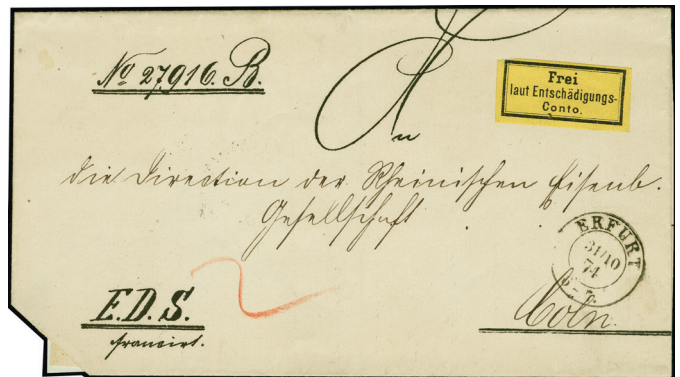 No 27916. B.
Frei
laut Entschädigungs-
Conto.
An
die Direction der Rheinischen Eisenb.
Gesellschaft
ERFURT
31/10
74
Coln.
E.D.S.
francirt.